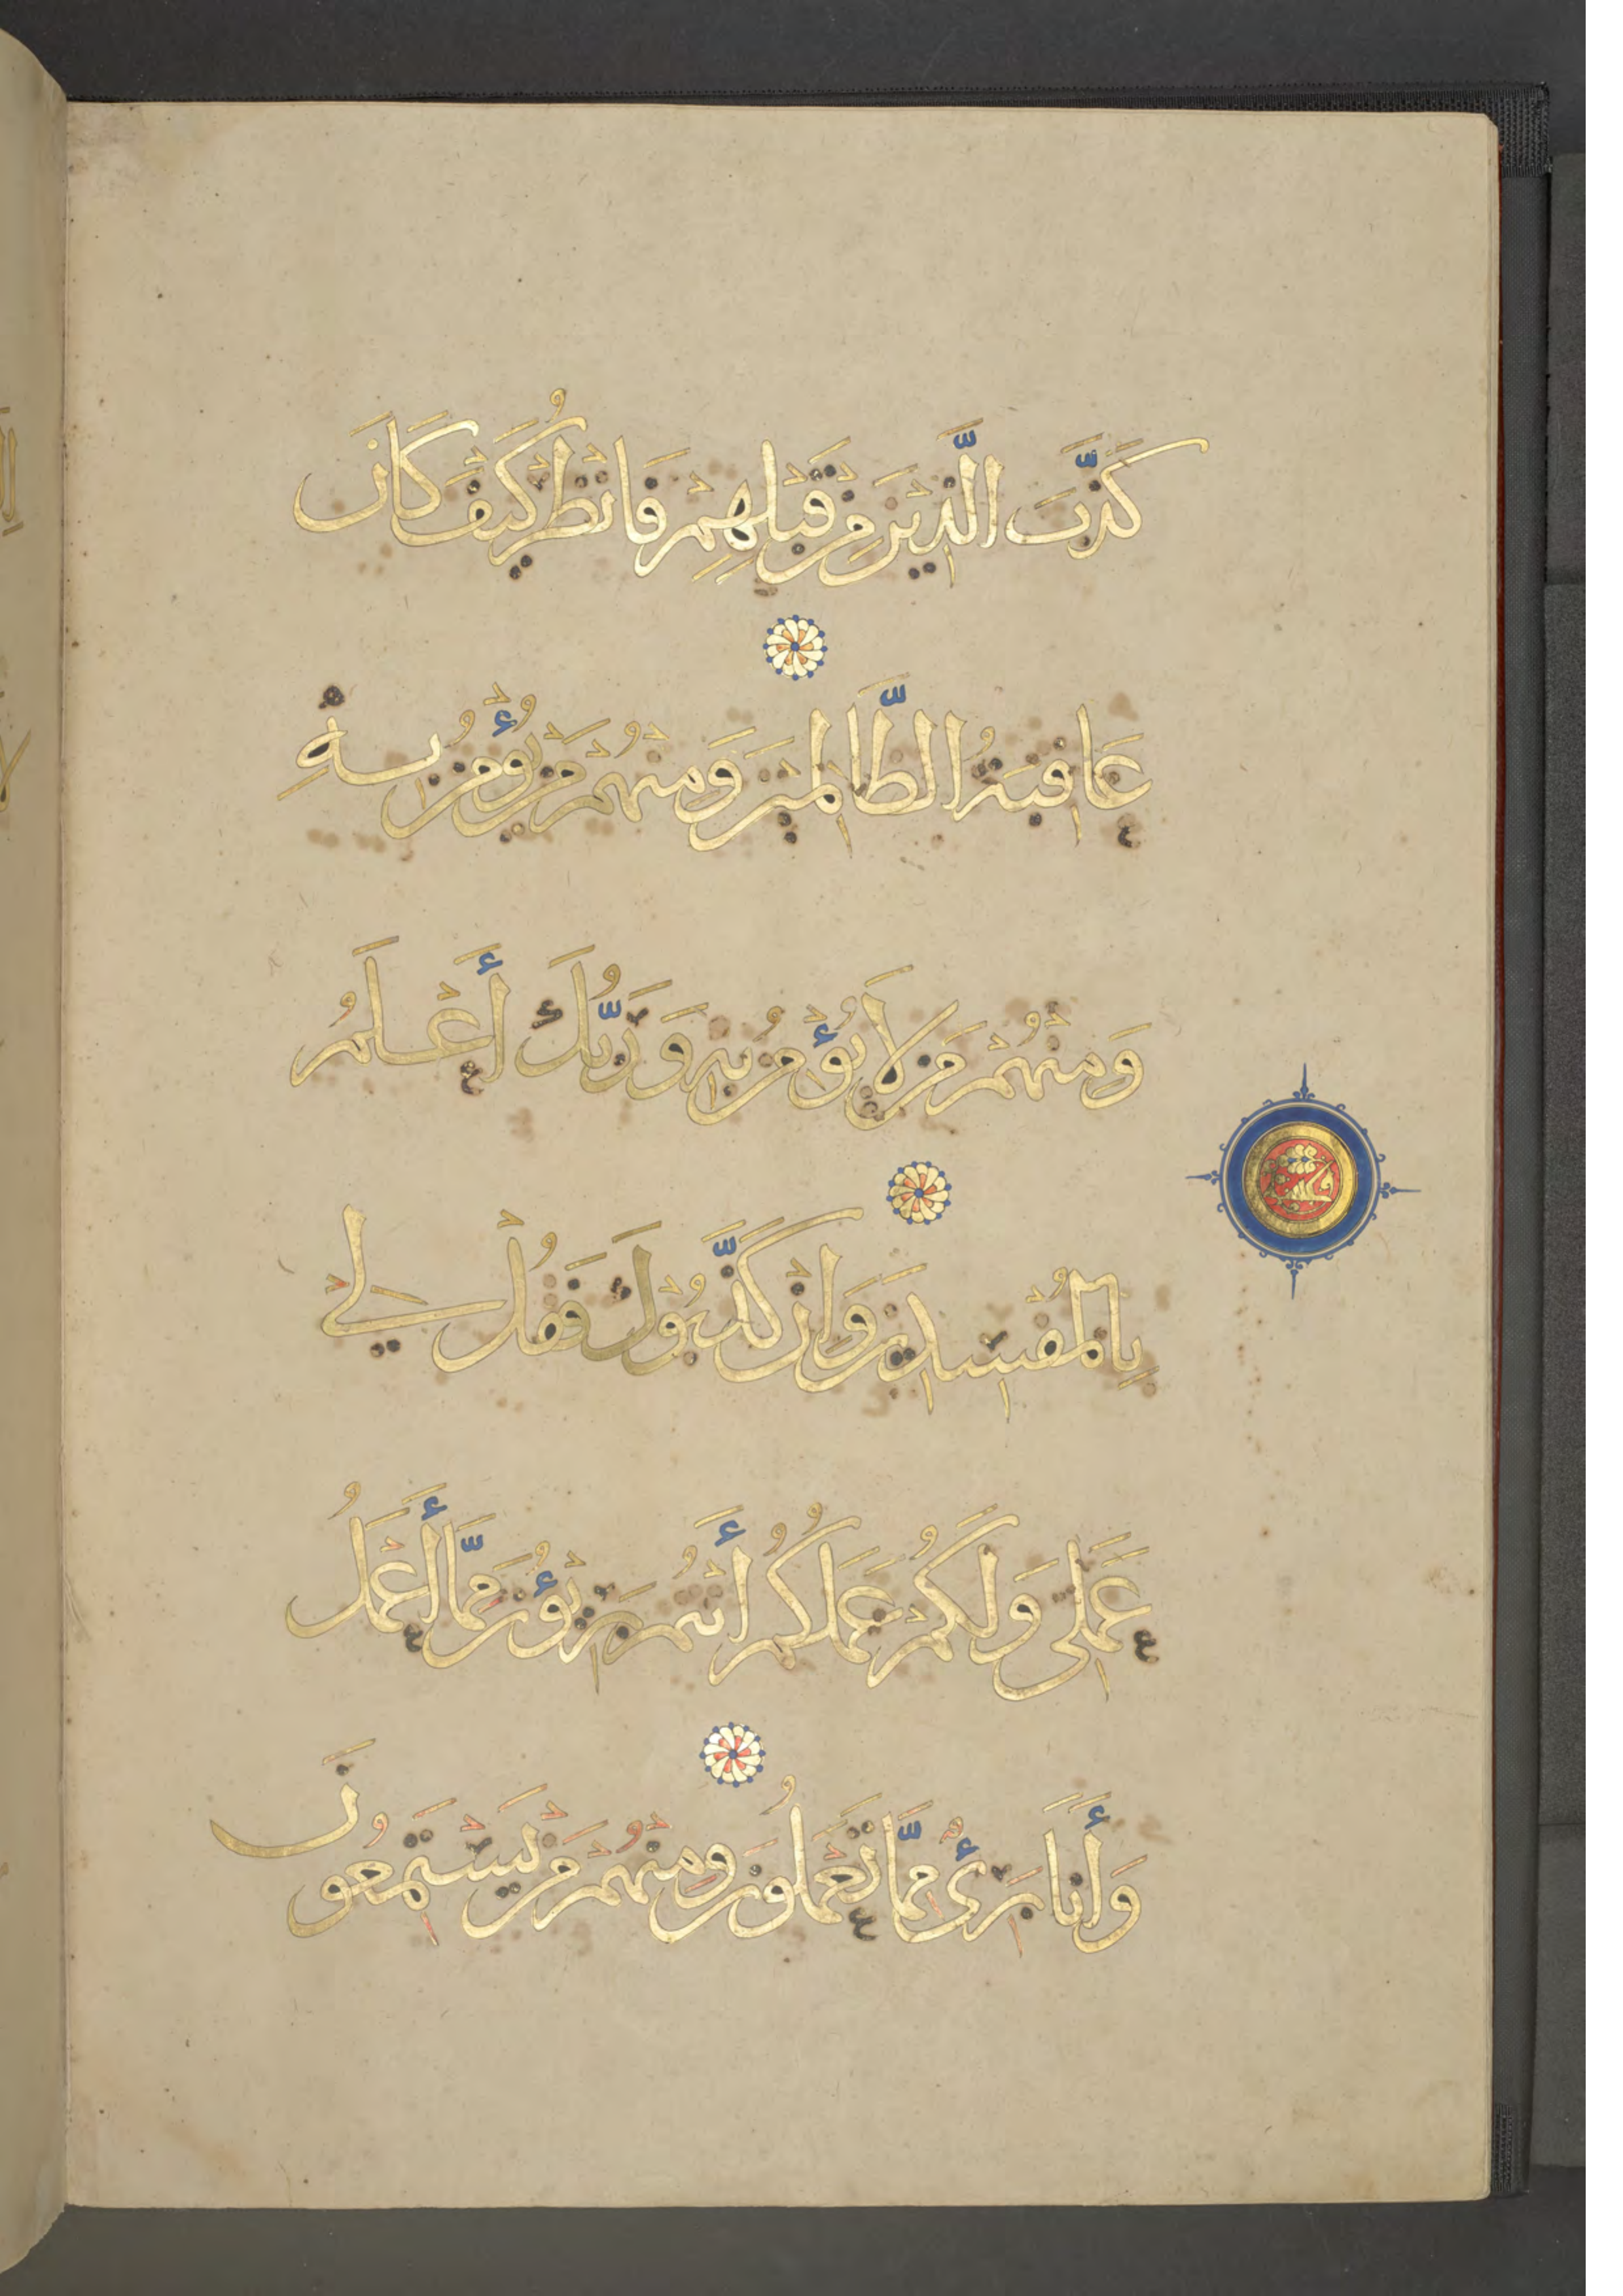 كَذَّبَ الَّذِينَ مِن قَبْلِهِمْ فَانْظُرْ كَيْفَ كَانَ
عَاقِبَةُ الظَّالِمِينَ وَمِنْهُمْ مَنْ يُؤْمِنُ بِهِ
وَمِنْهُمْ مَنْ لَا يُؤْمِنُ بِهِ وَرَبُّكَ أَعْلَمُ
بِالْمُفْسِدِينَ وَإِنْ كَذَّبُوكَ فَقُلْ لِي
عَمَلِي وَلَكُمْ عَمَلُكُمْ أَنْتُمْ بَرِيؤُنَ مِمَّا أَعْمَلُ
وَأَنَا بَرِئٌ مِمَّا تَعْمَلُونَ وَمِنْهُمْ مَنْ يَسْتَمِعُونَ